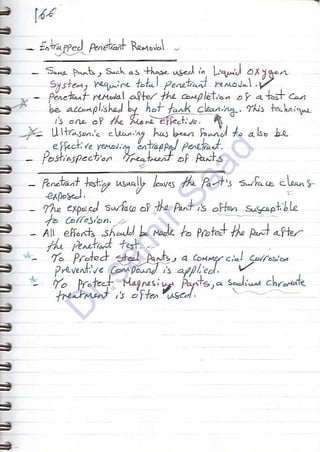 166
- Entrapped Penetrant Removal -
- Some Parts, Such as those used in Liquid Oxygen
System, require total penetrant removal.
- Penetrant removal after the completion of a test can
be accomplished by hot tank cleaning. This technique
is one of the more effective.
- Ultrasonic cleaning has been found to also be
effective removing entrapped penetrant.
- Postinspection Treatment of Parts
- Penetrant testing usually leaves the Part's surface clean &
exposed.
- The exposed surface of the Part is often susceptible
to corrosion.
- All efforts should be made to Protect the part after
the Penetrant test.
- To Protect Steel Parts, a commercial corrosion
preventive compound is applied.
- To Protect Magnesium Parts, a sodium chromate
treatment is often used.